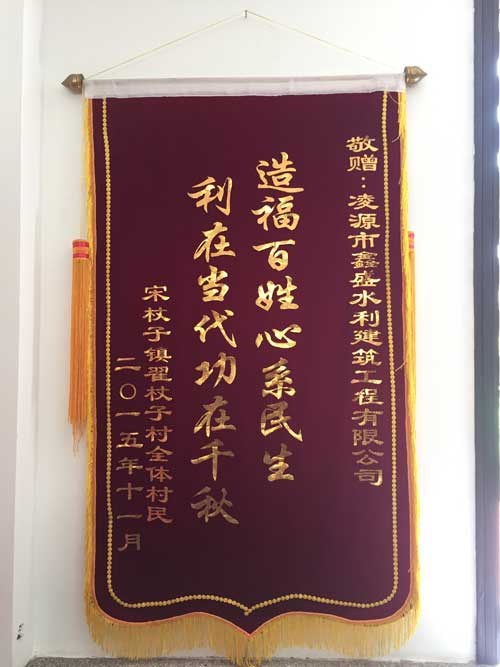 敬赠：凌源市鑫盛水利建筑工程有限公司
造福百姓心系民生
利在当代功在千秋
宋杖子镇翟杖子村全体村民
二〇一五年十一月